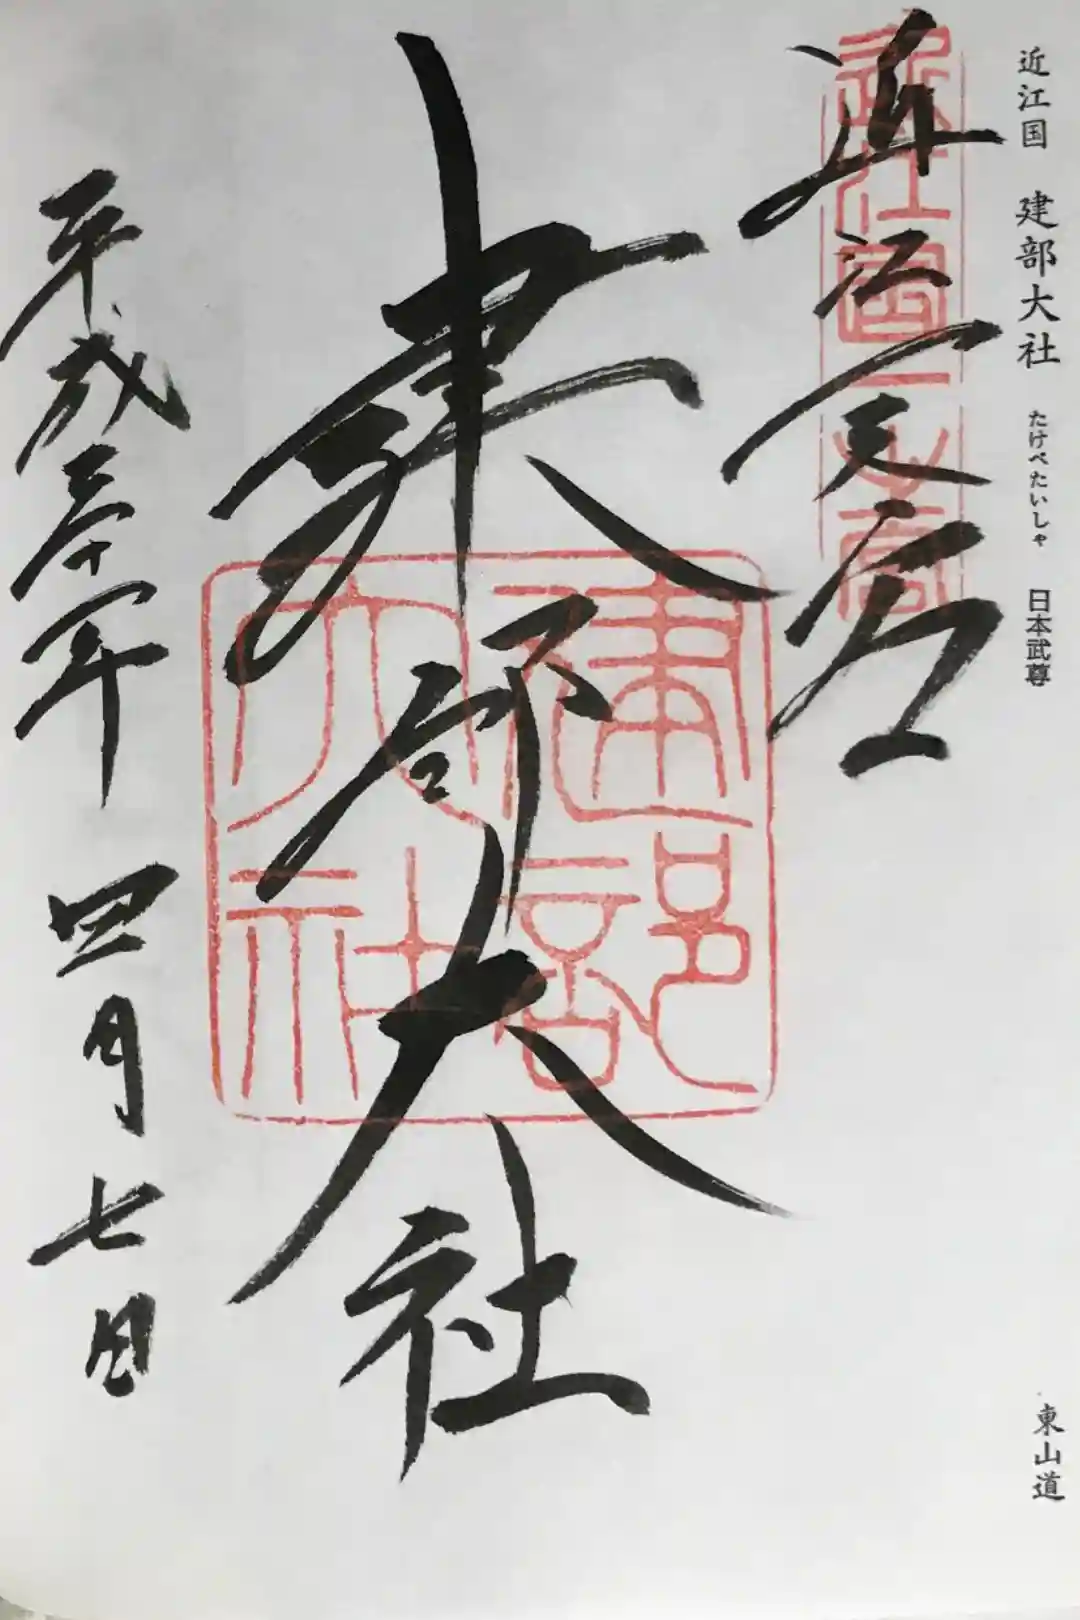 近江国　建部大社　たけべたいしゃ　日本武尊
東山道
近江一之宮
近江國一之宮
建部大社
建部大社
平成三十年　四月七日